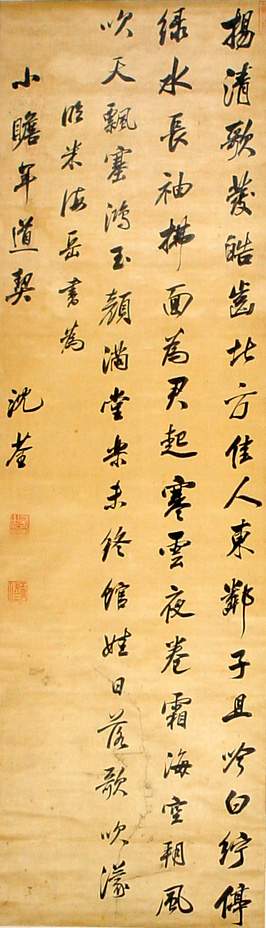 揚清歌發皓齒北方佳人東鄰子且吟白紵停
綠水長袖拂面為君起寒雲夜卷霜海空胡風
吹天飄塞鴻玉顏滿堂樂未終館娃日落歌吹濛
臨米海岳書為
小瞻年道契 沈荃